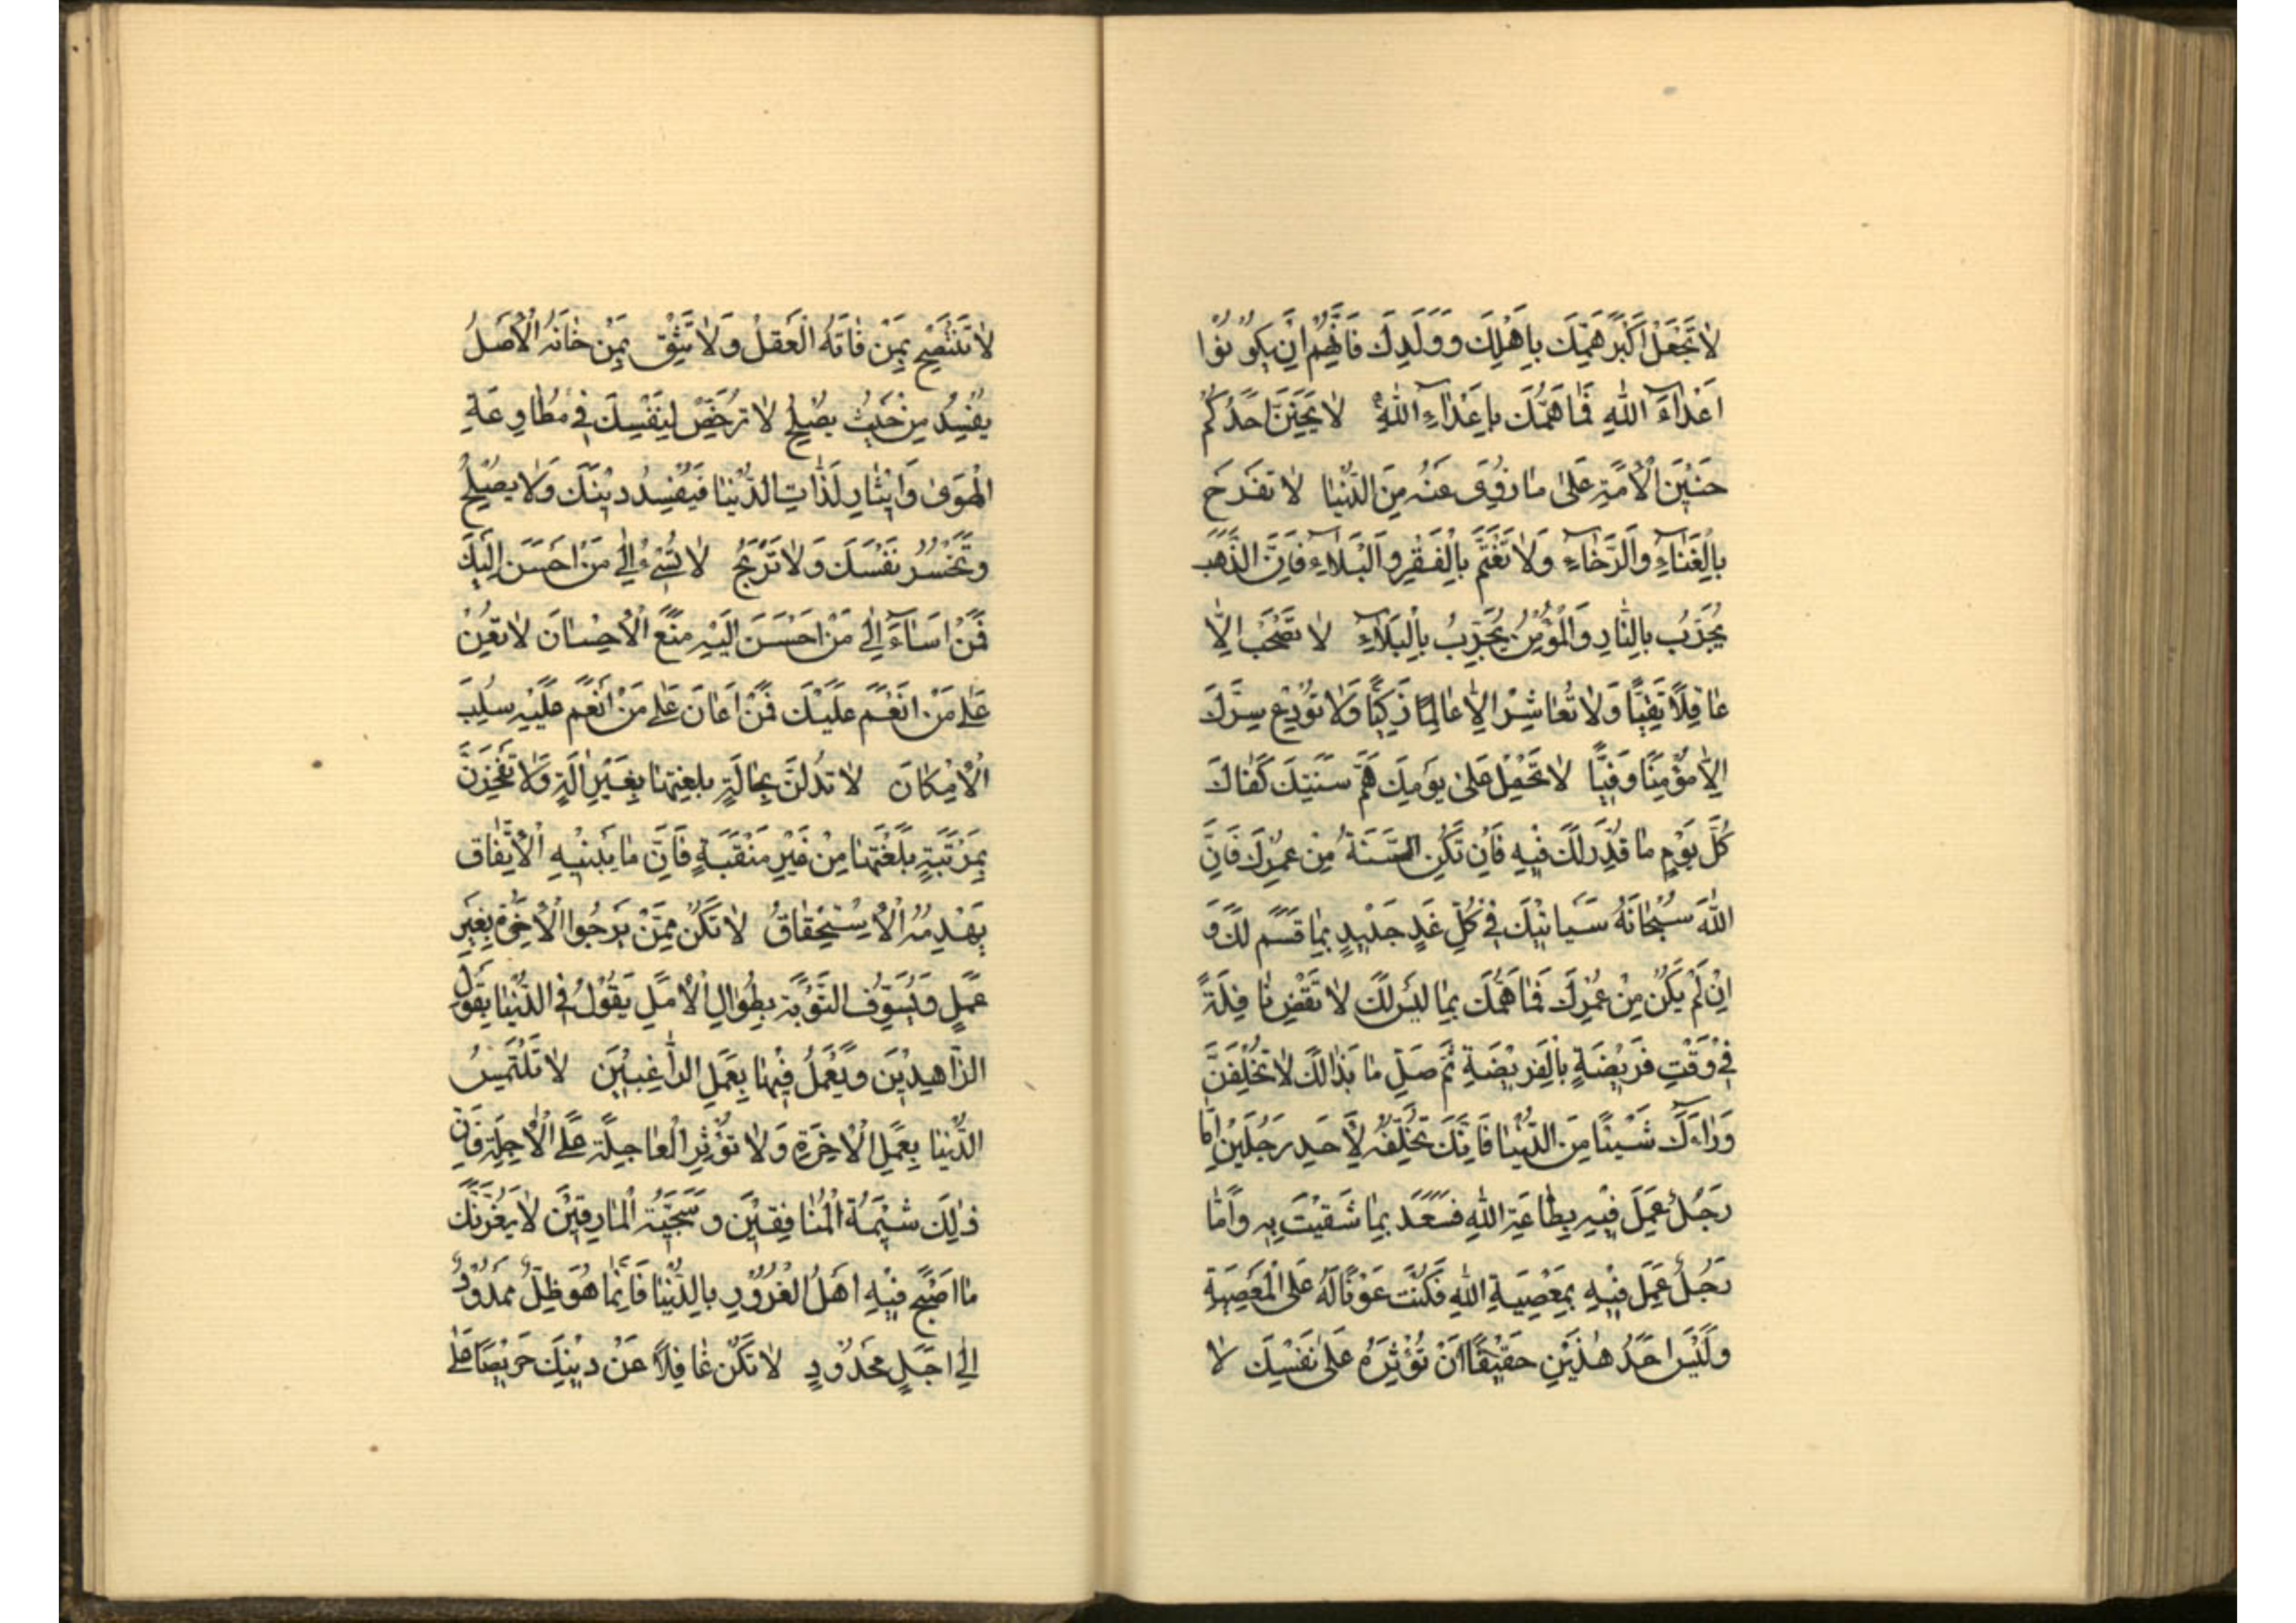 لا تَجْعَلْ اَكْبَرَ هَمِّكَ بِاَهْلِكَ وَوَلَدِكَ فَاِنَّهُمْ اِنْ يَكُونُوا
اَعْدٰاءَ اللهِ فَمٰا هَمُّكَ بِاَعْدٰاءِ اللهِ لا يَحِنَّنَ اَحَدُكُمْ
حَنِيْنَ الْاَمَةِ عَلىٰ مٰا زُوِىَ عَنْهُ مِنَ الدُّنْيٰا لا تَفْرَحَ
بِالْغَنٰاءِ وَالرَّخٰاءِ وَلا تَغْتَمَّ بِالْفَقْرِ وَالْبَلاءِ فَاِنَّ الذَّهَبَ
يُجَرَّبُ بِالنّٰارِ وَالْمُؤْمِنُ يُجَرَّبُ بِالْبَلاءِ لا تَصْحَبْ اِلّا
عٰاقِلاً تَقِيًّا وَلا تُعٰاشِرْ اِلّا عٰالِمًا زَكِيًّا وَلا تُوْدِعْ سِرَّكَ
اِلّا مُؤْمِنًا وَفِيًّا لا تَحْمِلْ عَلىٰ يَوْمِكَ هَمَّ سَنَتِكَ كَفٰاكَ
كُلَّ يَوْمٍ مٰا قُدِّرَ لَكَ فِيْهِ فَاِنْ تَكُنِ السَّنَةُ مِنْ عُمْرِكَ فَاِنَّ
اللهَ سُبْحٰانَهُ سَيَاتِيْكَ فِيْ كُلِّ غَدٍ جَدِيْدٍ بِمٰا قَسَمَ لَكَ وَ
اِنْ لَمْ يَكُنْ مِنْ عُمْرِكَ فَمٰا هَمُّكَ بِمٰا لَيْسَ لَكَ لا تَقْضِ نٰافِلَةً
فِيْ وَقْتِ فَرِيْضَةٍ بِالْفَرِيْضَةِ ثُمَّ صَلِّ مٰا بَدٰالَكَ لا تُخْلِفَنَّ
وَرٰاءَكَ شَيْئًا مِنَ الدُّنْيٰا فَاِنَّكَ تُخَلِّفُهُ لِاَحَدِ رَجُلَيْنِ اِمّٰا
رَجُلٌ عَمِلَ فِيْهِ بِطٰاعَةِ اللهِ فَسَعَدَ بِمٰا شَقِيْتَ بِهِ وَاَمّٰا
رَجُلٌ عَمِلَ فِيْهِ بِمَعْصِيَةِ اللهِ فَكُنْتَ عَوْنًا لَهُ عَلَى الْمَعْصِيَةِ
وَلَيْسَ اَحَدُ هٰذَيْنِ حَقِيْقًا اَنْ تُؤْثِرَهُ عَلىٰ نَفْسِكَ لا
لا تَنْتَصِحْ بِمَنْ فٰاتَهُ الْعَقْلُ وَلا تَثِقْ بِمَنْ خٰانَهُ الْاَصْلُ
يُفْسِدُ مِنْ حَيْثُ يُصْلِحُ لا تُرَخِّصْ لِنَفْسِكَ فِيْ مُطٰاوِعَةِ
الْهَوىٰ وَاِيْثٰارِ لَذّٰاتِ الدُّنْيٰا فَيَفْسُدُ دِيْنَكَ وَلا يَصْلُحُ
وَتَخْسَرُ نَفْسَكَ وَلا تَرْبَحُ لا تُسِيءُ اِلىٰ مَنْ اَحْسَنَ اِلَيْكَ
فَمَنْ اَسٰاءَ اِلىٰ مَنْ اَحْسَنَ اِلَيْهِ مَنَعَ الْاِحْسٰانَ لا تُعِنْ
عَلىٰ مَنْ اَنْعَمَ عَلَيْكَ فَمَنْ اَعٰانَ عَلىٰ مَنْ اَنْعَمَ عَلَيْهِ سُلِبَ
الْاِمْكٰانَ لا تَدُلَّنَّ بِحٰالَةٍ بَلَغْتَهٰا بِغَيْرِ اٰلَةٍ وَلا تَفْخَرَنَّ
بِمَرْتَبَةٍ بَلَغْتَهٰا مِنْ غَيْرِ مَنْقَبَةٍ فَاِنَّ مٰا يَبْنِيْهِ الْاِتِّفٰاق
يَهْدِمُهُ الْاِسْتِحْقٰاقُ لا تَكُنْ مِمَّنْ يَرْجُوا الْاٰخِرَةَ بِغَيْرِ
عَمَلٍ وَيُسَوِّفُ التَّوْبَةَ بِطُوْلِ الْاَمَلِ يَقُوْلُ فِى الدُّنْيٰا يَقُوْلَ
الزّٰاهِدِيْنَ وَيَعْمَلُ فِيْهٰا بِعَمَلِ الرّٰاغِبِيْنَ لا تَلْتَمِسُ
الدُّنْيٰا بِعَمَلِ الْاٰخِرَةِ وَلا تُؤْثِرِ الْعٰاجِلَةَ عَلَى الْاٰجِلَةِ فَاِنَّ
ذٰلِكَ شِيْمَةُ الْمُنٰافِقِيْنَ وَسَجِيَّةُ الْمٰارِقِيْنَ لا يَغُرَّنَّكَ
مٰا اَصْبَحَ فِيْهِ اَهْلُ الْغُرُوْرِ بِالدُّنْيٰا فَاِنَّمٰا هُوَ ظِلٌّ مَمْدُوْدٌ
اِلىٰ اَجَلٍ مَحْدُوْدٍ لا تَكُنْ غٰافِلاً عَنْ دِيْنِكَ حَرِيْصًا عَلىٰ